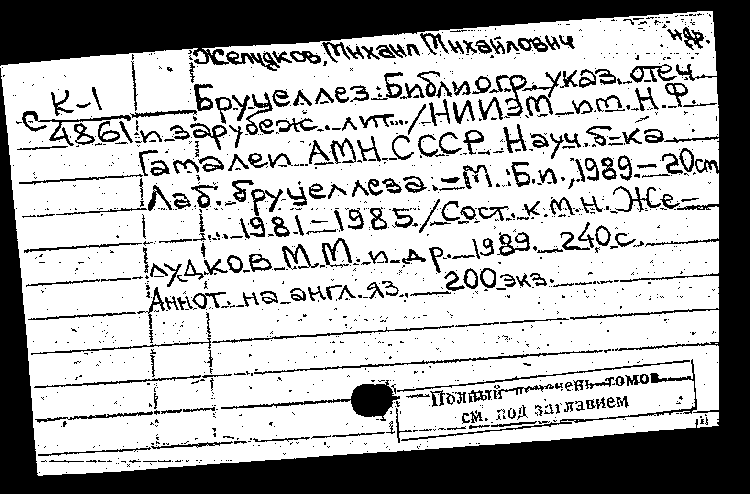 Желудков, Михаил Михайлович и др.
К-1
С 4861
Бруцеллез: Библиогр. указ. отеч.
и зарубеж. лит. /НИИЭМ им. Н.Ф.
Гамалеи АМН СССР. Науч. б-ка.
Лаб. бруцеллеза.-М.:Б.и.,1989.-20см
... 1981-1985./Сост. к.м.н. Же-
лудков М.М. и др. 1989. 240с.
Аннот. на англ. яз. 200экз.
Полный перечень томов
см. под заглавием